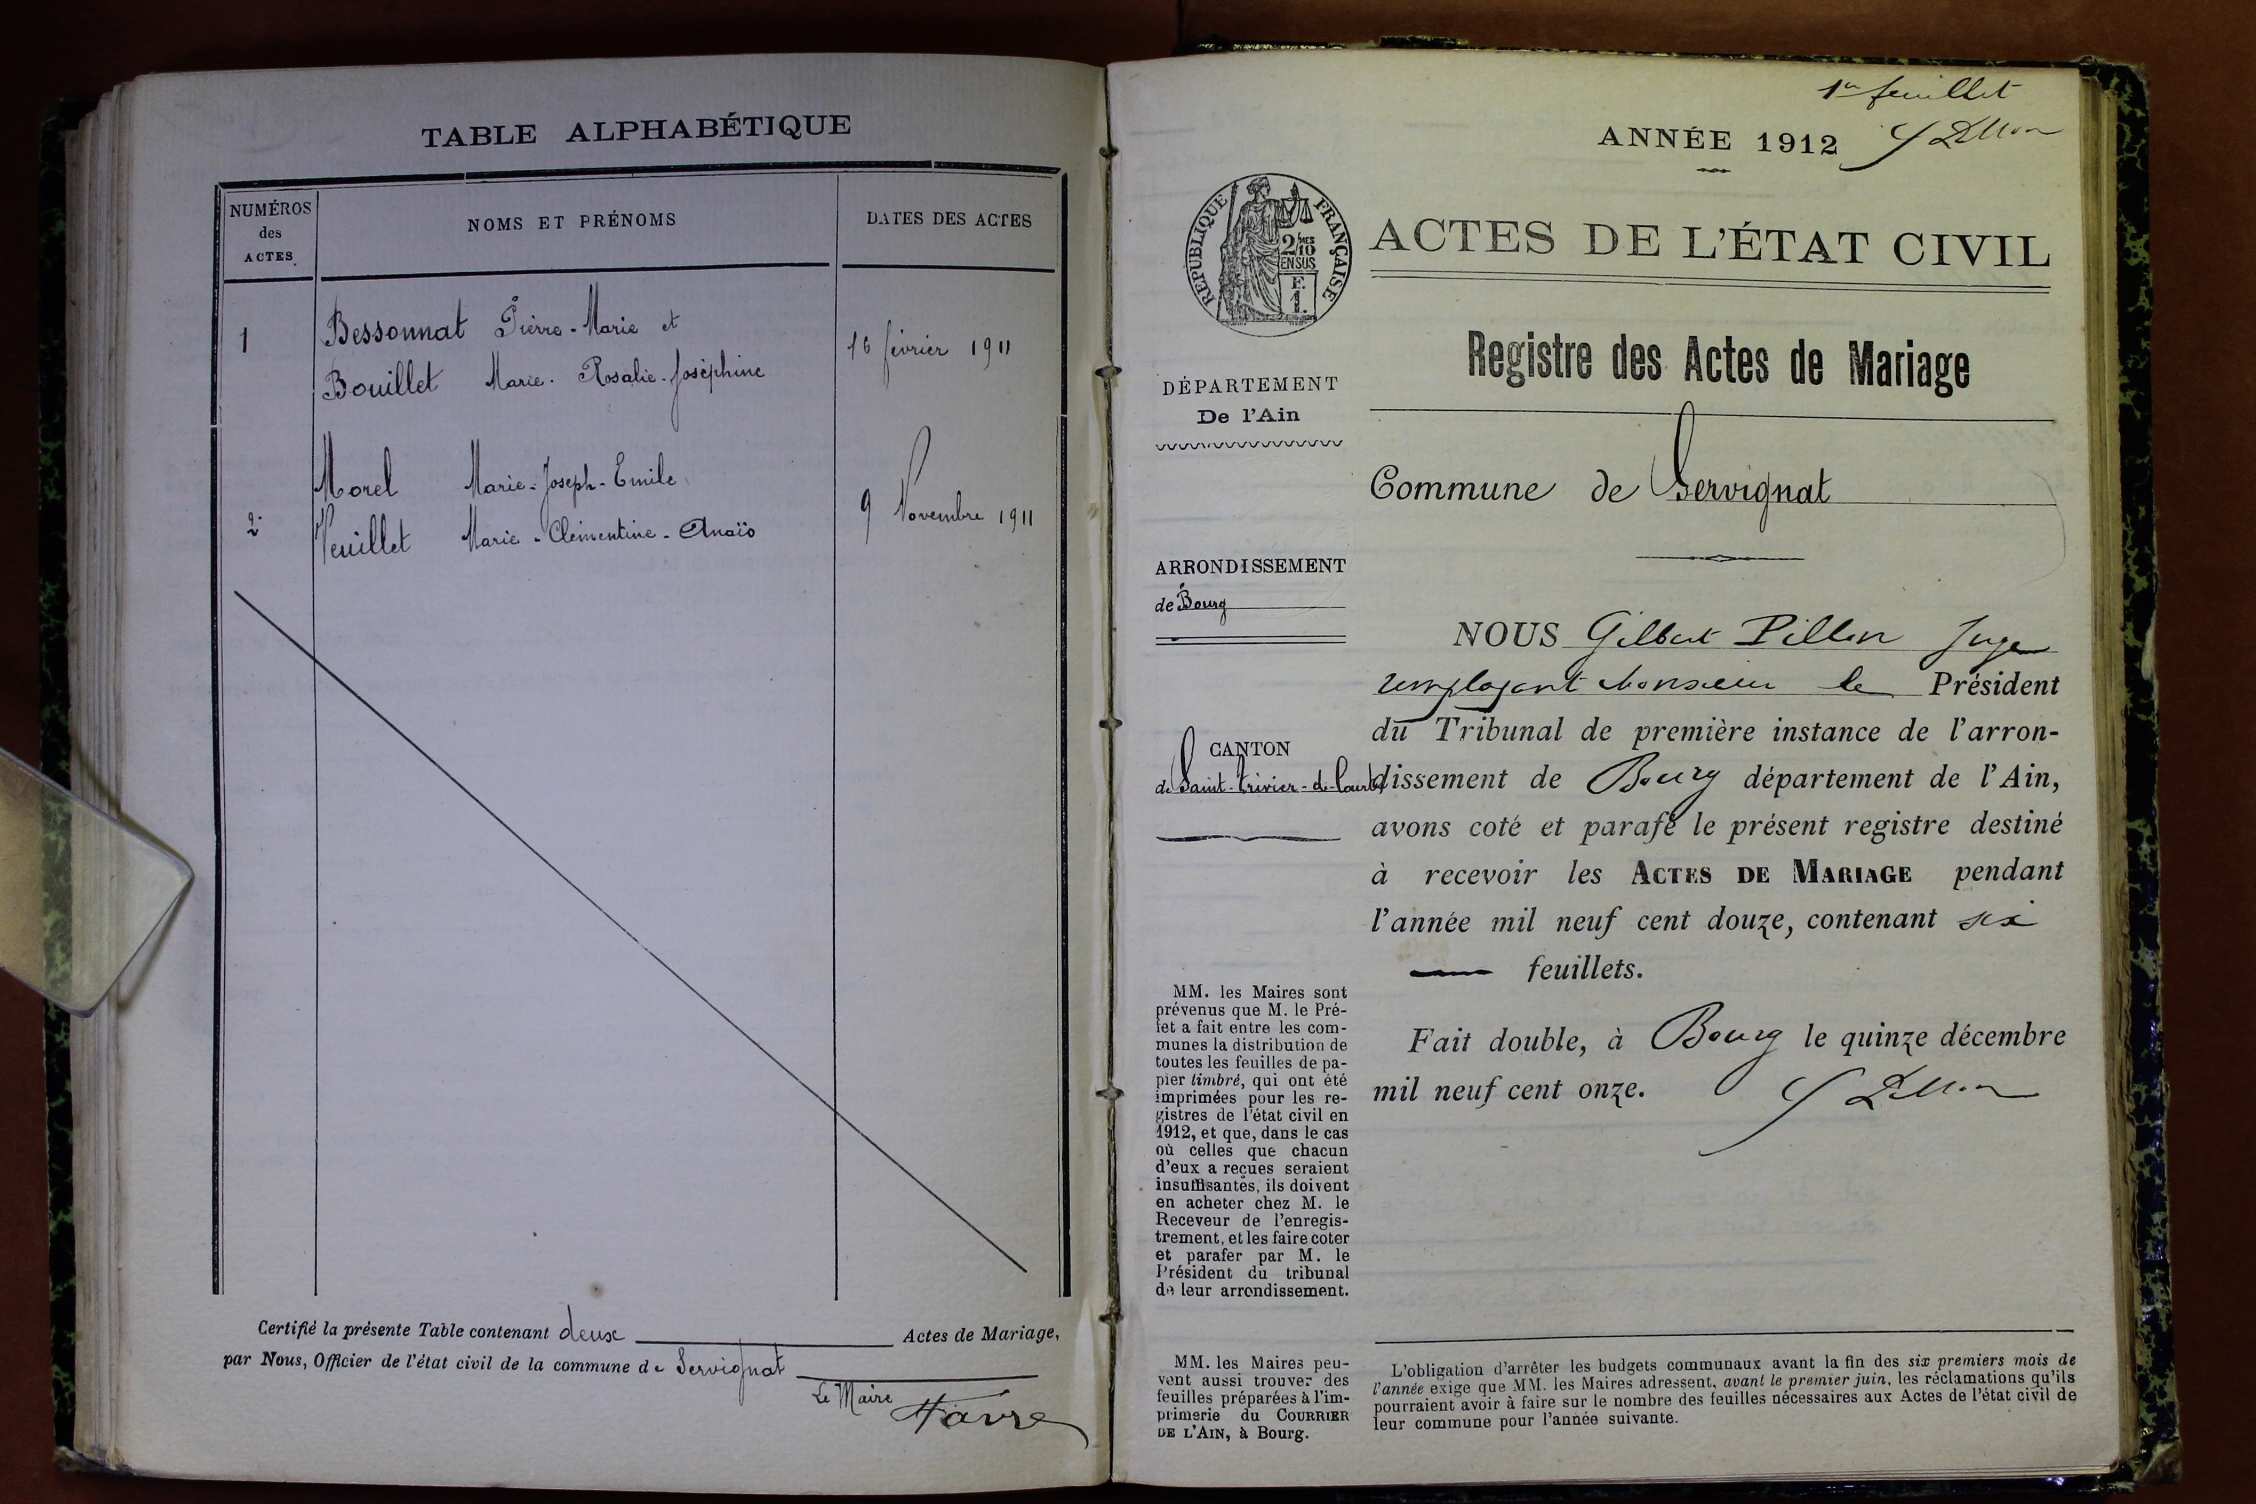 TABLE ALPHABÉTIQUE
NUMÉROS
des
ACTES
NOMS ET PRÉNOMS
DATES DES ACTES
1
Bessonnat Pierre-Marie et
Bouillet Marie-Rosalie-Joséphine
16 février 1911
2
Morel Marie-Joseph-Emile
Veuillet Marie-Clémentine-Anaïs
9 Novembre 1911
Certifié la présente Table contenant deux Actes de Mariage,
par Nous, Officier de l'état civil de la commune de Servignat
Le Maire
Favre
1er feuillet
G Pillon
ANNÉE 1912
RÉPUBLIQUE FRANÇAISE
2/10mes
EN SUS
F.
1.
ACTES DE L'ÉTAT CIVIL
Registre des Actes de Mariage
Commune de Servignat
DÉPARTEMENT
De l'Ain
ARRONDISSEMENT
de Bourg
CANTON
de Saint-Trivier-de-Courtes
MM. les Maires sont
prévenus que M. le Pré-
fet a fait entre les com-
munes la distribution de
toutes les feuilles de pa-
pier timbré, qui ont été
imprimées pour les re-
gistres de l'état civil en
1912, et que, dans le cas
où celles que chacun
d'eux a reçues seraient
insuffisantes, ils doivent
en acheter chez M. le
Receveur de l'enregis-
trement, et les faire coter
et parafer par M. le
Président du tribunal
de leur arrondissement.
MM. les Maires peu-
vent aussi trouver des
feuilles préparées à l'im-
primerie du COURRIER
DE L'AIN, à Bourg.
NOUS Gilbert Pillon Juge
remplaçant Monsieur le Président
du Tribunal de première instance de l'arron-
dissement de Bourg département de l'Ain,
avons coté et parafé le présent registre destiné
à recevoir les ACTES DE MARIAGE pendant
l'année mil neuf cent douze, contenant six
feuillets.
Fait double, à Bourg le quinze décembre
mil neuf cent onze.
G Pillon
L'obligation d'arrêter les budgets communaux avant la fin des six premiers mois de
l'année exige que MM. les Maires adressent, avant le premier juin, les réclamations qu'ils
pourraient avoir à faire sur le nombre des feuilles nécessaires aux Actes de l'état civil de
leur commune pour l'année suivante.